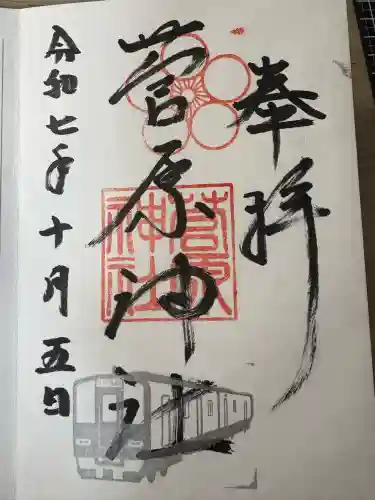 奉拝
菅原神社
菅原
神社
令和七年十月五日